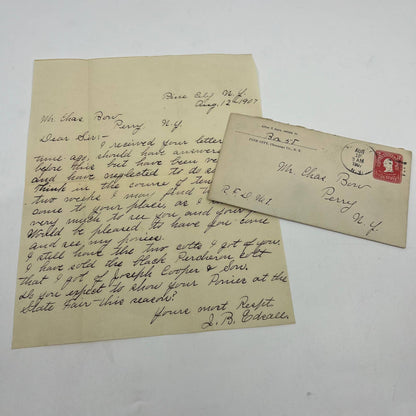 Pine City N.Y.
Aug. 12th 1907
Mr. Chas Bow
Perry N.Y
Dear Sir:-
I received your letter
time ago, should have answered
before this but have been very
and have neglected to do so
think in the course of ten
two weeks I may find time
come to your place, as I
very much to see you and your
Would be pleased to have you come
and see my ponies.
I still have the two colts I got of you.
I have sold the black Percheron colt
that I got of Joseph Cooper & Son.
do you expect to show your Ponies at the
State Fair - this season?
Yours most Respt
J. B. Edsall
Box 55
PINE CITY,
AUG
1907
Mr. Chas Bow
Perry
N.Y.
R.F.D. No 1